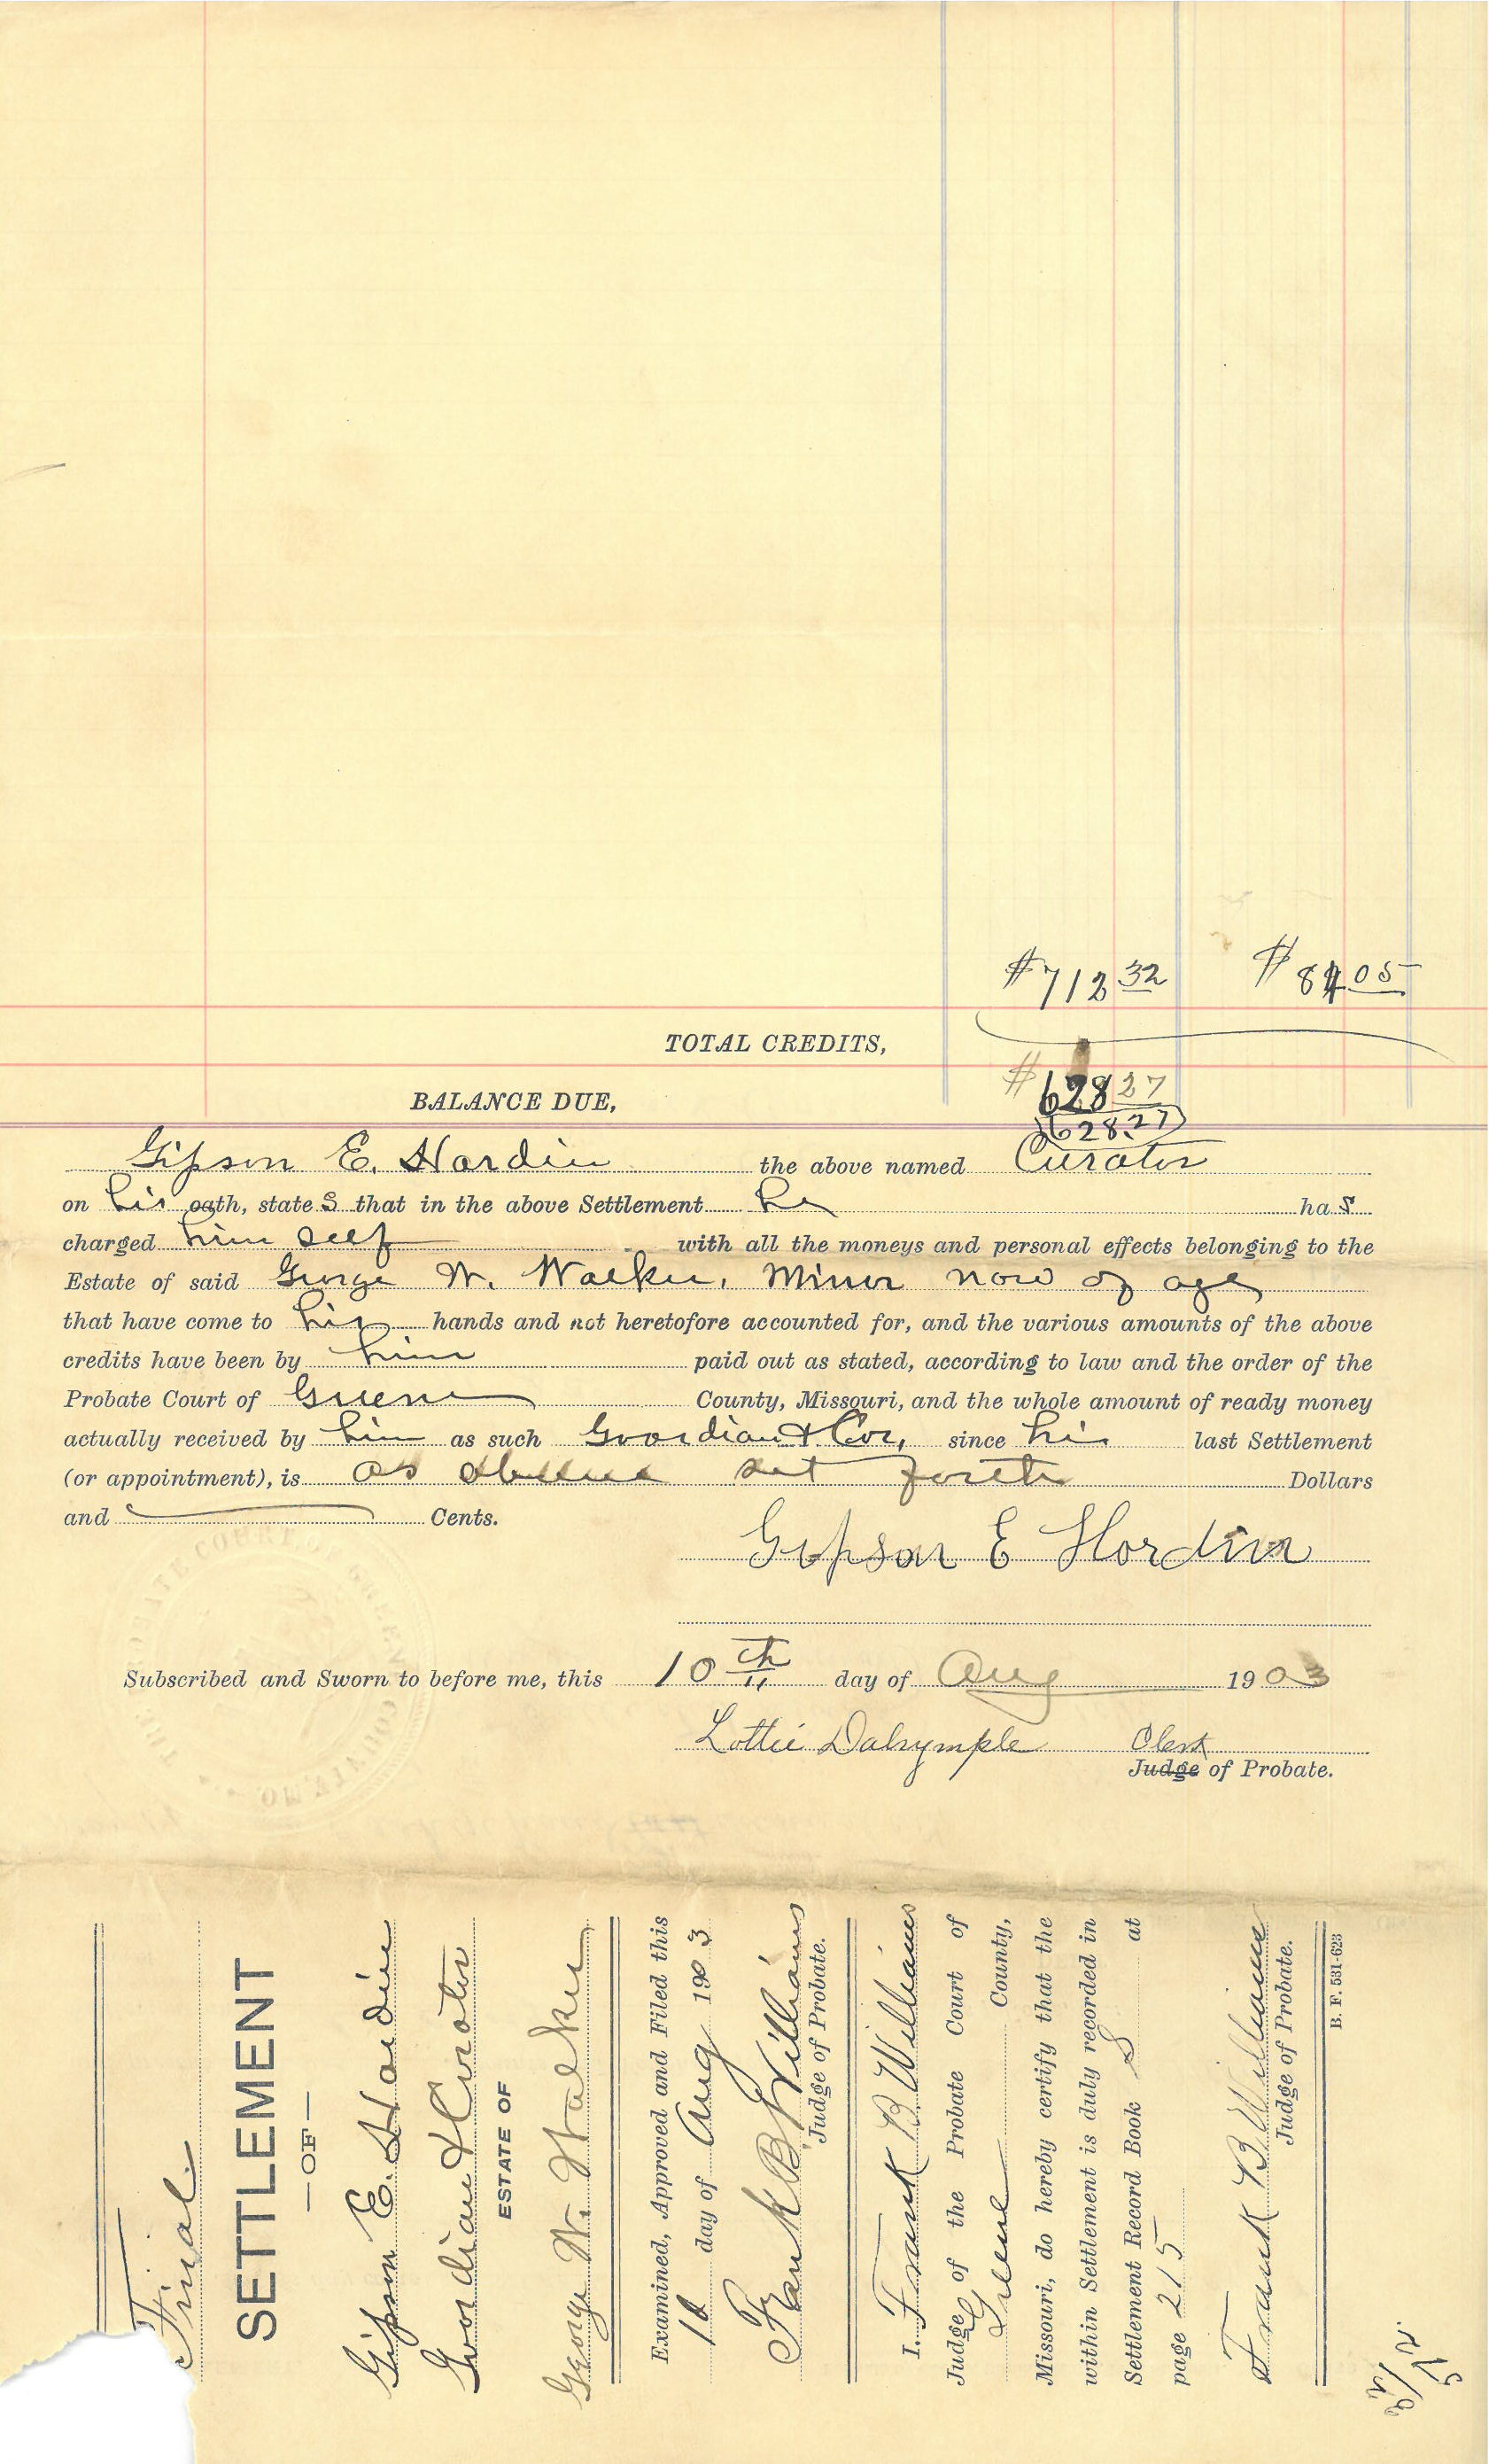 $712 32 $84 05
TOTAL CREDITS,
$628 27
BALANCE DUE,
$628.27
Gipson E. Hardin the above named Curator
on his oath, states that in the above Settlement he has
charged him self with all the moneys and personal effects belonging to the
Estate of said George W. Walker, Minor now of age
that have come to his hands and not heretofore accounted for, and the various amounts of the above
credits have been by him paid out as stated, according to law and the order of the
Probate Court of Greene County, Missouri, and the whole amount of ready money
actually received by him as such Guardian & Cur, since his last Settlement
(or appointment), is as above set forth Dollars
and Cents.
Gipson E Hardin
Subscribed and Sworn to before me, this 10th day of Aug 1903
Lottie Dalrymple Clerk
Judge of Probate.
PROBATE COURT OF GREENE COUNTY, MO.
Final
SETTLEMENT
—OF—
Gipson E. Hardin
Guardian & Curator
ESTATE OF
George W. Walker
Examined, Approved and Filed this
10 day of Aug 1903
Frank B Williams
Judge of Probate.
I, Frank B Williams
Judge of the Probate Court of
Greene County,
Missouri, do hereby certify that the
within Settlement is duly recorded in
Settlement Record Book S at
page 215
Frank B Williams
Judge of Probate.
B. F. 531-623